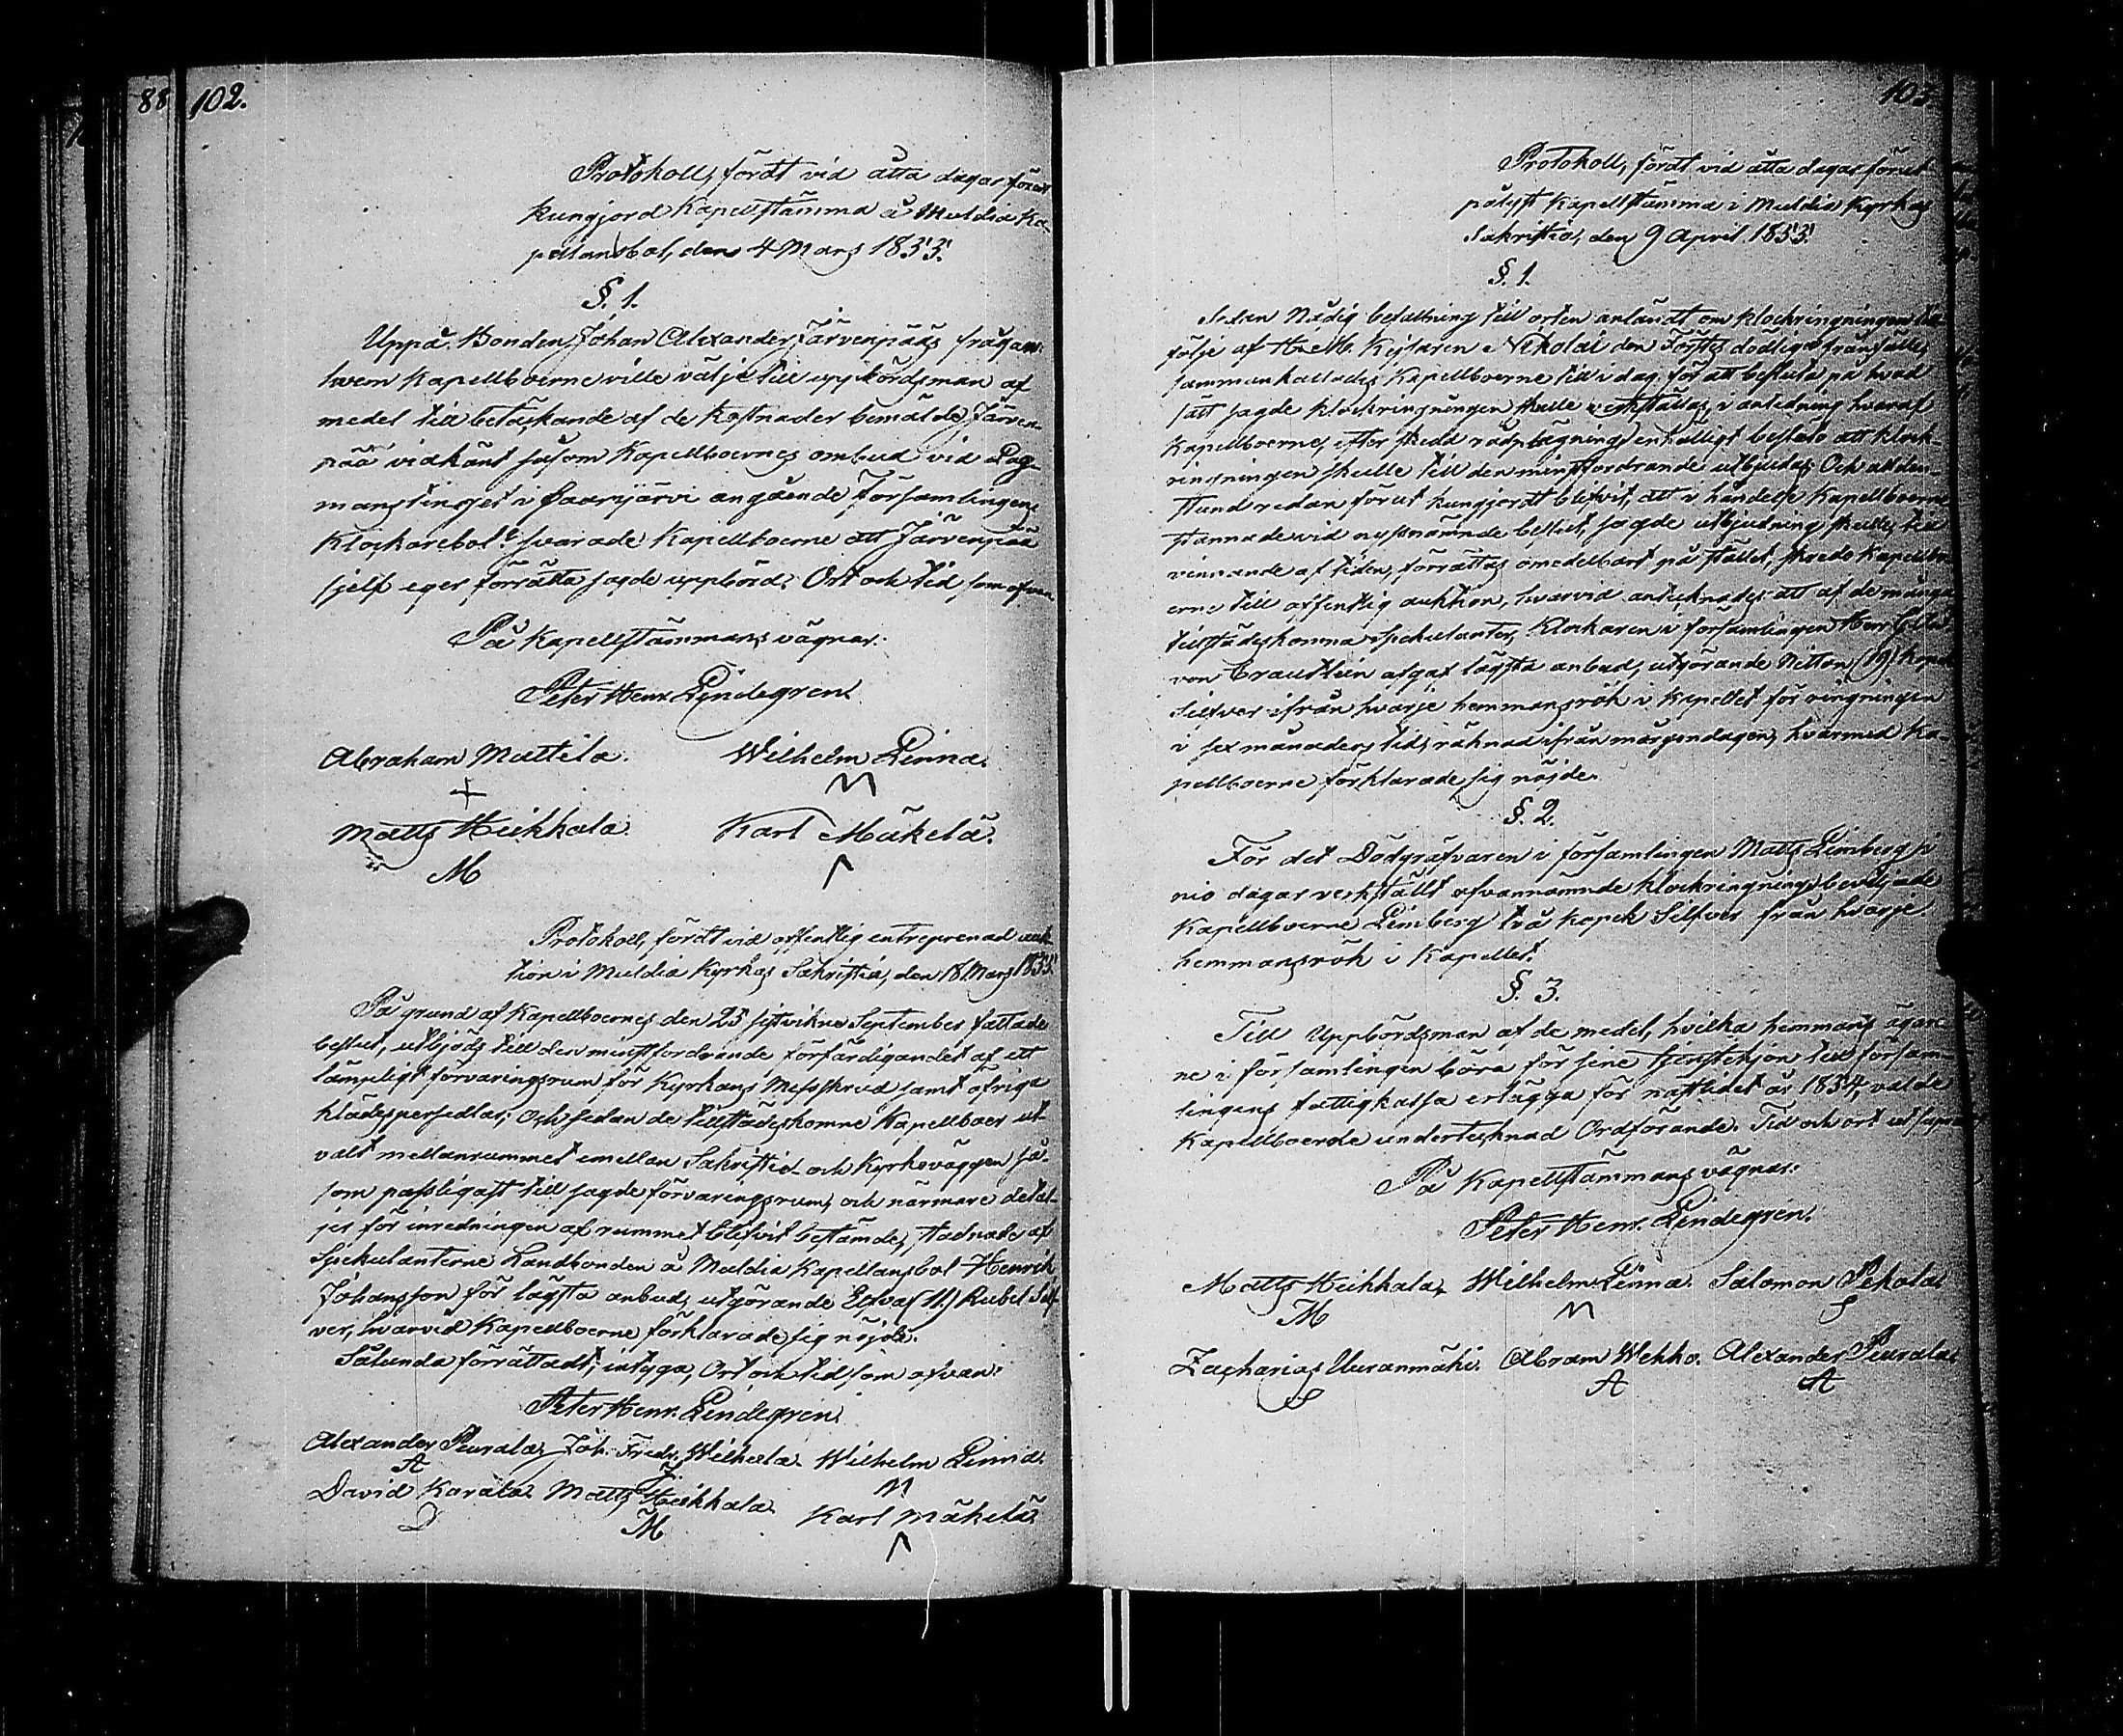 88 102.
Protokoll, fördt vid åtta dagar förut
kungjord Kapellstämma å Muldia Ka-
pellansbol, den 4 Mars 1855.
§. 1.
Uppå Bonden Johan Alexander Järvenpääs frågan:
hvem Kapellboerne ville välja till uppbördsman af
medel till betäckande af de kostnader bemälde Järven-
pää vidkänt såsom Kapellboernes ombud vid Lag-
manstinget i Saarijärvi angående Församlingens
Klockarebol, svarade Kapellboerne att Järvenpää
sjelf eger förrätta sagde uppbörd. Ort och tid som ofvan
På Kapellstämmans vägnar:
Peter Henr. Lindegren.
Abraham Mattila. Wilhelm Linna.
Matts Heikkala. Karl Mäkelä.
M
Protokoll, fördt vid offentlig entreprenad auk-
tion i Muldia Kyrkas Sakristia, den 18 Mars 1855.
På grund af Kapellboernes den 25 sistvikne September fattade
beslut, utbjöds till den minstfordrande förfärdigandet af ett
lämpeligt förvaringsrum för Kyrkans Messskrud samt öfriga
klädespersedlar; Och sedan de tillstädeskomne Kapellboer ut-
valt mellanrummet emellan Sakristie- och Kyrkoväggen så-
som passligast till sagde förvaringsrum, och närmare detal-
jer för inredningen af rummet blefvit bestämde, stadnade af
Spekulanterne Landbonden å Muldia Kapellansbol Henrik
Johansson för lägsta anbud, utgörande Elfva (11) Rubel Silf-
ver, hvarvid Kapellboerne förklarade sig nöjde.
Sålunda förrättadt, intyga, Ort och tid som ofvan:
Peter Henr. Lindegren.
Alexander Peurala, Joh. Fredr. Wilhela. Wilhelm Linna.
A
David Karala. Matts Heikkala. Karl Mäkelä.
D M
103
Protokoll, fördt vid åtta dagar förut
pålyst Kapellstämma i Muldia Kyrkas
Sakristia, den 9 April 1855.
§. 1.
Sedan Nådig befallning till orten anländt om klockringningen till
följe af H. M. Kejsaren Nikolai den Förstes dödliga frånfälle,
sammankallades Kapellboerne till i dag för att besluta på hvad
sätt sagde klockringningen skulle verkställas, i anledning hvaraf
Kapellboerne, efter skedd rådplägning, enhälligt besluto att klock-
ringningen skulle till den minstfordrande utbjudas. Och all den
stund redan förut kungjordt blifvit, att i händelse Kapellboerne
stannade vid nyssnämnde beslut, sagde utbjudning skulle, till
vinnande af tiden, förrättas omedelbart på stället, skredo Kapellbo-
erne till offentlig auktion, hvarvid antecknades: att af de många
tillstädeskomna Spekulanter, Klockaren i församlingen Herr
von Essen afgaf lägsta anbud, utgörande Nitton (19) Kopek
Silfver ifrån hvarje hemmansrök i Kapellet för ringningen
i sex månaders tid, räknad ifrån morgondagen, hvarmed Ka-
pellboerne förklarade sig nöjde.
§. 2.
För det Dödgräfvaren i församlingen Matts Limberg i
nio dagar verkställt ofvannämnde klockringning beviljade
Kapellboerne Limberg två kopek Silfver från hvarje
hemmansrök i Kapellet.
§. 3.
Till Uppbördsman af de medel, hvilka hemmans ägar-
ne i församlingen böra för sine tjenstehjon till försam-
lingens fattigkassa erlägga för nästledet år 1854, valde
Kapellboerne undertecknad Ordförande. Tid och ort ut supra.
På Kapellstämmans vägnar:
Peter Henr. Lindegren.
Matts Heikkala, Wilhelm Linna. Salomon Pekola.
M S
Zacharias Uuranmäki. Abram Wehko. Alexander Peurala.
S A A